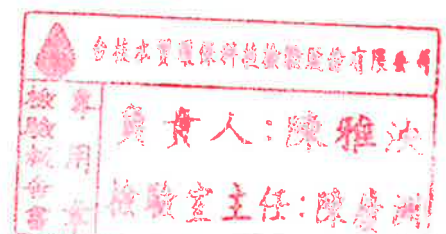 台技本質環保科技檢驗股份有限公司
檢驗報告書
專用章
負責人:陳雅
檢驗室主任:陳